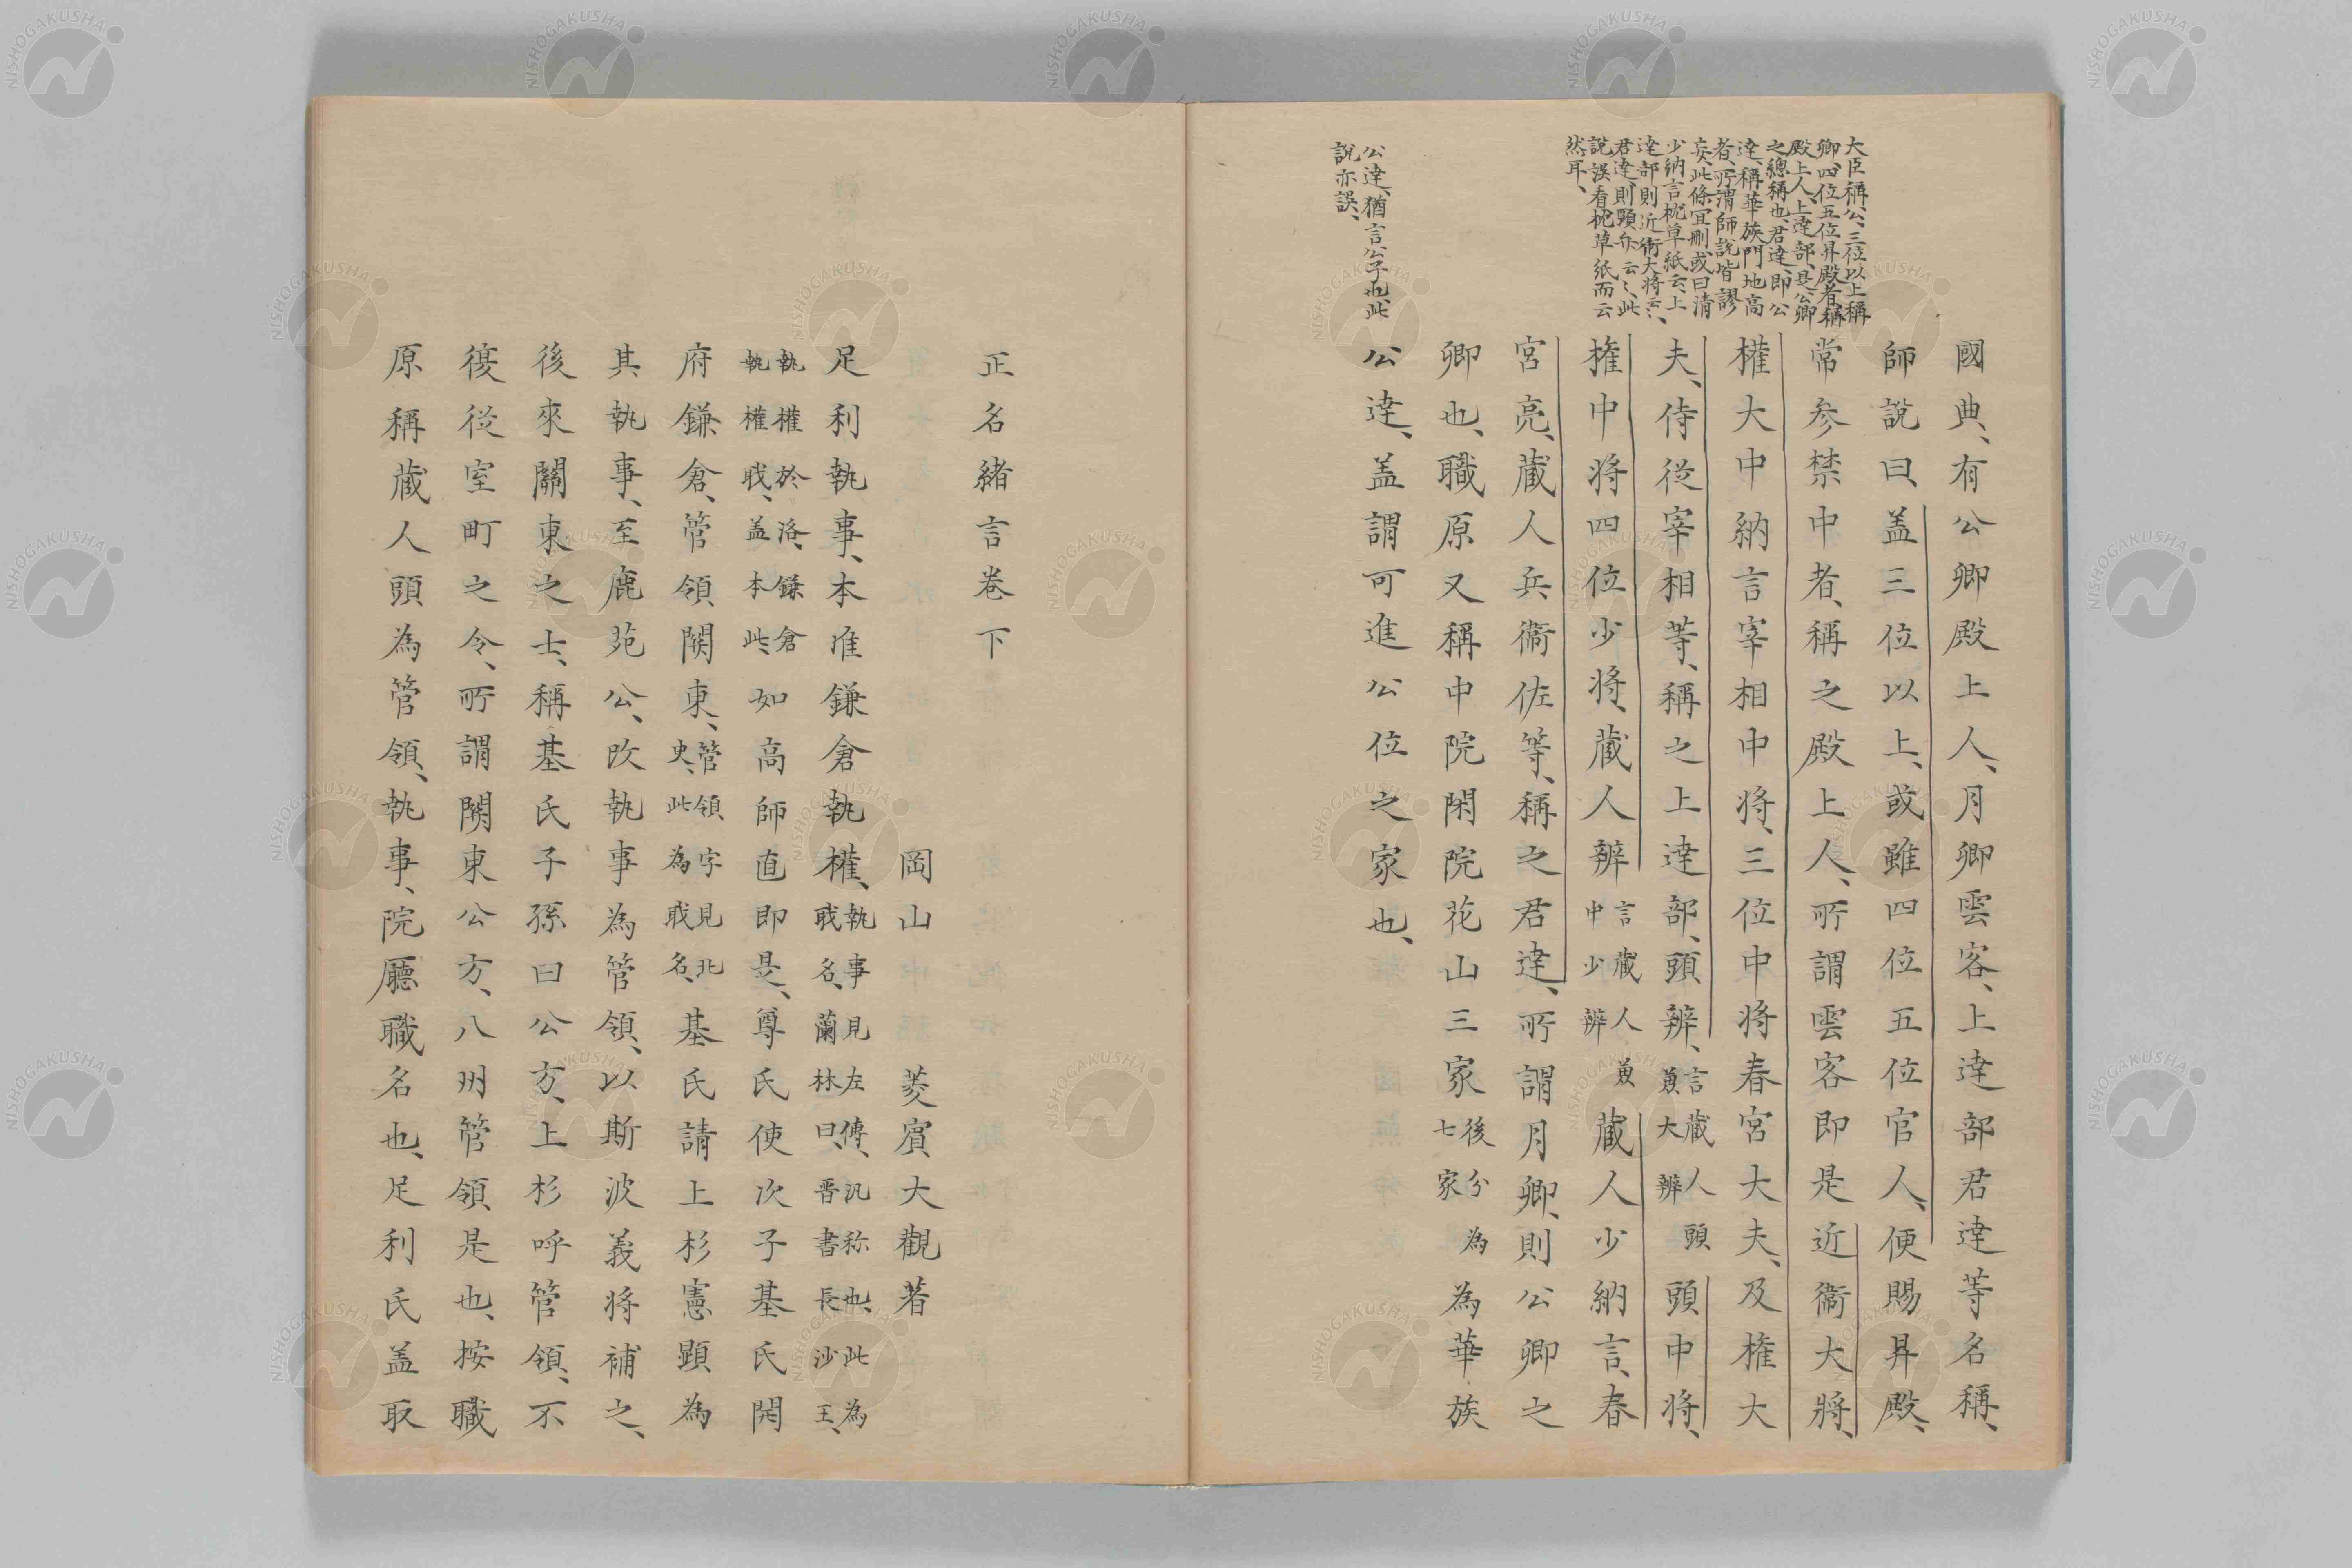 大臣稱公、三位以上稱
卿、四位五位昇殿者稱
殿上人、上達部、是公卿
之總稱也、君達、即公
達、稱華族門地高
者、所謂師說皆謬
妄、此條宜刪、或曰清
少納言枕草紙云、上
達部則近衛大將云〻、
君達則頭弁云〻、此
說誤看枕草紙而云
然耳、
公達、猶言公子也、此
說亦誤、
國典、有公卿殿上人、月卿雲客、上達部君達等名稱、
師說曰、盖三位以上、或雖四位五位官人、便賜昇殿、
常參禁中者、稱之殿上人、所謂雲客即是近衛大將、
權大中納言宰相中將、三位中將春宮大夫、及権大
夫、侍從宰相等、稱之上達部、頭辨、言藏人頭兼大辨頭中將、
権中將四位少將、藏人辨言藏人兼中少辨藏人少納言、春
宮亮、藏人兵衛佐等、稱之君達、所謂月卿、則公卿之
卿也、職原又稱中院閑院花山三家後分為七家為華族
公達、盖謂可進公位之家也、
正名緒言巻下
岡山　菱賓大觀著
足利執事、本准鎌倉執權、執事見左傳、汎称也、此為戝名、蘭林曰、晋書長沙王、
執權於洛、鎌倉執權戝、盖本此、如高師直即是、尊氏使次子基氏開
府鎌倉、管領関東、管領字見北史、此為戝名、基氏請上杉憲顕為
其執事、至鹿苑公、改執事為管領、以斯波義将補之、
後來關東之士、稱基氏子孫曰公方、上杉呼管領、不
復從室町之令、所謂関東公方、八州管領是也、按職
原稱藏人頭為管領、執事、院廳職名也、足利氏盖取